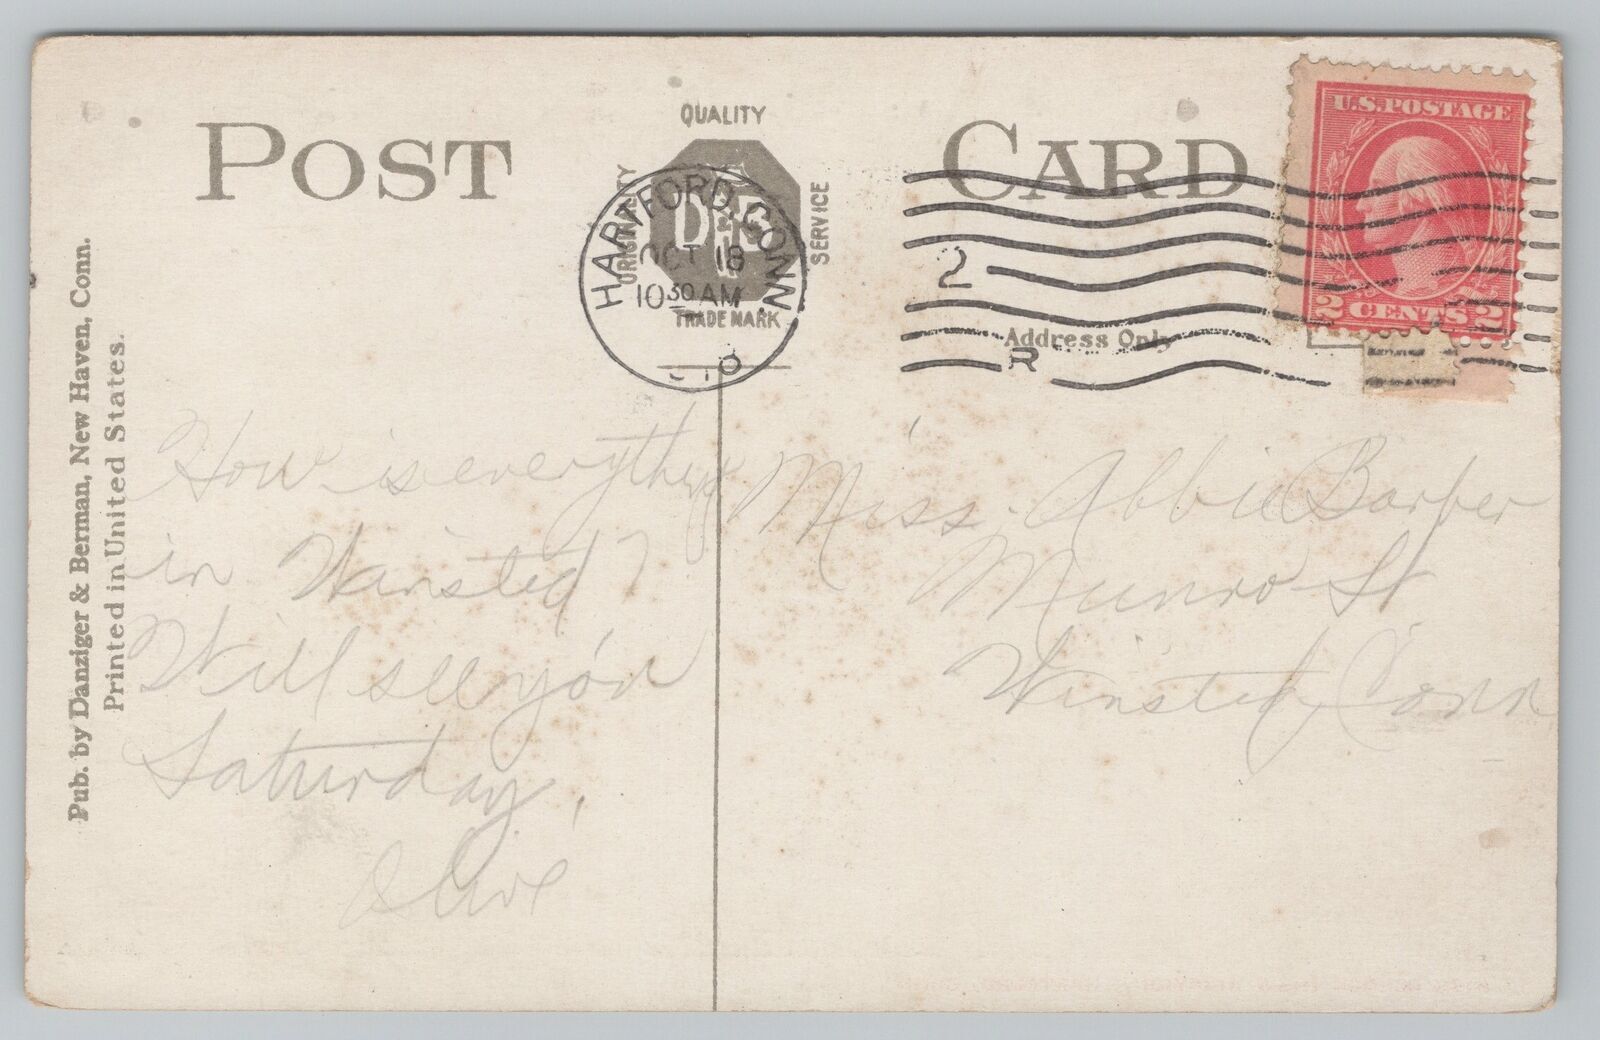 POST CARD
QUALITY
ORIGINALITY
SERVICE
D&B
TRADE MARK
HARTFORD, CONN.
OCT 18
10 30 AM
2
R
U.S. POSTAGE
2 CENTS 2
Address Only
Pub. by Danziger & Berman, New Haven, Conn.
Printed in United States.
How is everything
in Winsted?
Will see you
Saturday,
Olive
Miss. Abbie Barber
Munro St
Winsted, Conn